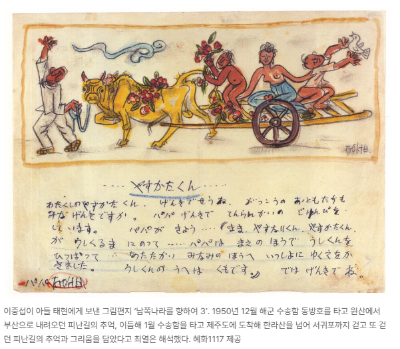 ㅈㅜㅇㅅㅓㅂ
‥‥ やすかたくん ‥‥
わたくしのやすかたくん、げんきでせうね。がっこうのおともだちも
みなげんきですか。パパ げんきで てんらんかいの じゅんびを
しています。パパが きょう‥‥ ママ、やすなりくん、やすかたくん
が うしくるまにのって‥‥パパは まえのほうで うしくんを
ひっぱって あたたかい みなみのほうへ いっしょに ゆくえをか
きました。うしくんの うへは くもです。では げんきでね。
パパ ㅈㅜㅇㅅㅓㅂ
이중섭이 아들 태현에게 보낸 그림편지 '남쪽나라를 향하여 3'. 1950년 12월 해군 수송함 동방호를 타고 원산에서
부산으로 내려오던 피난길의 추억, 이듬해 1월 수송함을 타고 제주도에 도착해 한라산을 넘어 서귀포까지 걷고 또 걷
던 피난길의 추억과 그리움을 담았다고 최열은 해석했다. 혜화1117 제공